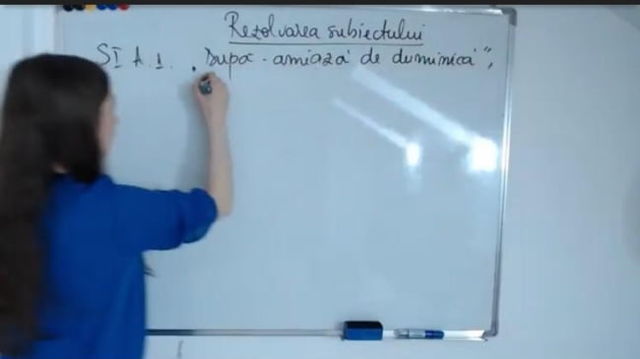 Rezolvarea subiectului
SI A.1. „După-amiază de duminică”,